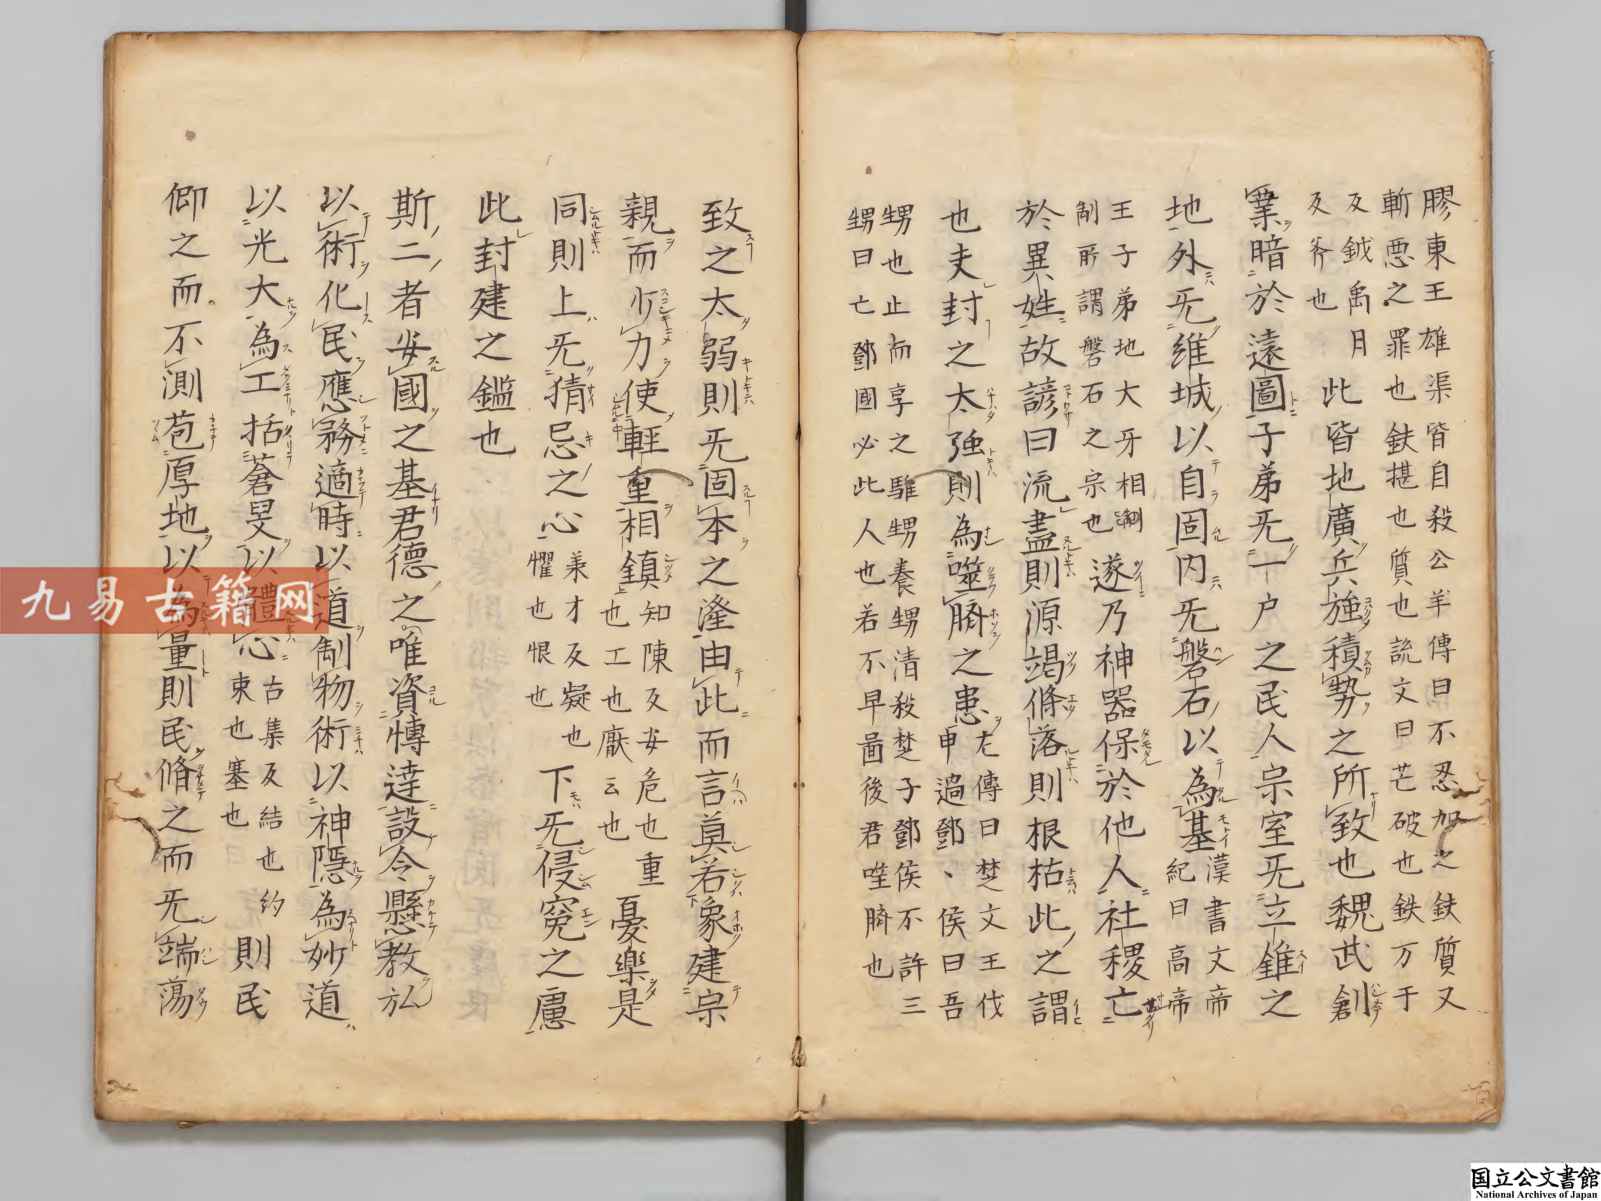 膠東王雄渠皆自殺公羊傳曰不忍加之鈇質又
斬悪之罪也鈇椹也質也説文曰芒破也鈇万于
反鉞禹月
反斧也
此皆地廣兵強積㔟之所致也魏武創
業暗於遠圖子弟旡一戸之民人宗室旡立錐之
地外旡維城以自固内旡磐石以為基
漢書文帝
紀曰高帝
王子弟地大牙相
制所謂磐石之宗也
遂乃神器保於他人社稷亡
於異姓故諺曰流盡則源竭條落則根枯此之謂
也夫封之太強則為噬臍之患
左傳曰楚文王伐
申過鄧、侯曰吾
甥也止而享之騅甥養甥清殺楚子鄧侯不許三
甥曰亡鄧國必此人也若不早啚後君噬臍也
致之太弱則旡固本之漥由此而言莫若象建宗
親而少力使輕重相鎮
知陳反安危也重
也工也厭云也
憂樂是
同則上旡猜忌之心
兼才反凝也
懼也恨也
下旡侵寃之慮
此封建之鑑也
斯二者安國之基君德之唯資慱達設令懸教㳒
以術化民應務適時以道制物術以神隠為妙道
以光大為工括蒼旻以體心
古集反結也約
束也塞也
則民
仰之而不測苞厚地以為量則民脩之而旡端蕩
九易古籍网
国立公文書館
National Archives of Japan